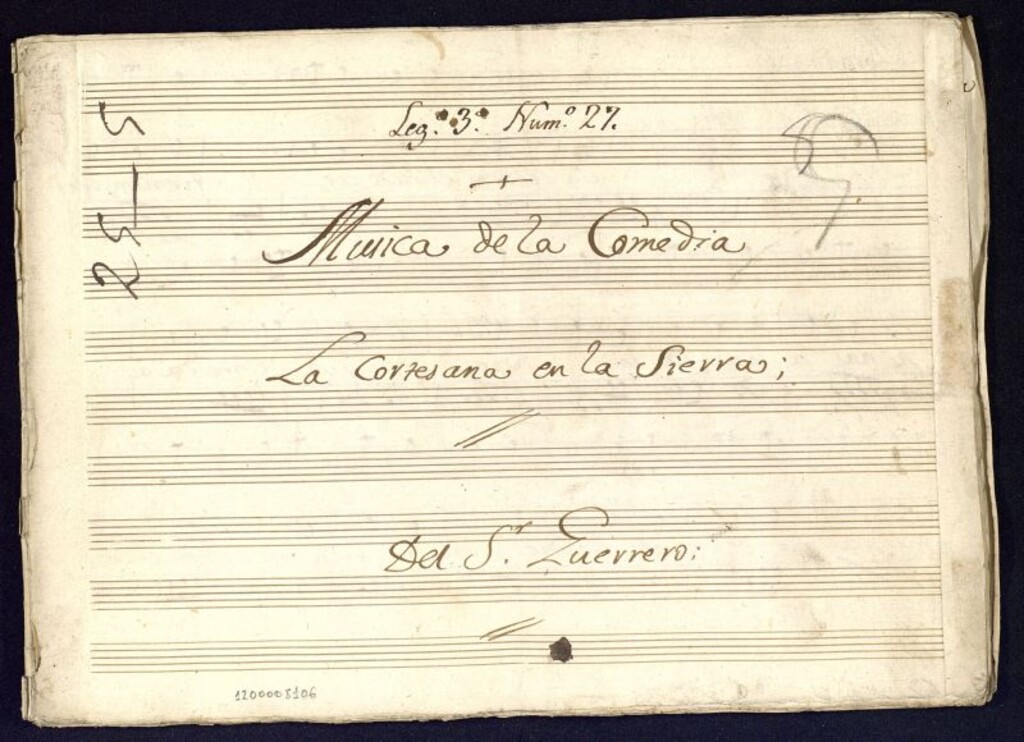 Leg.º 3.º Num.º 27.
Musica de la Comedia
La Cortesana en la Sierra;
Del S.r Guerrero:
25_5
1200008106